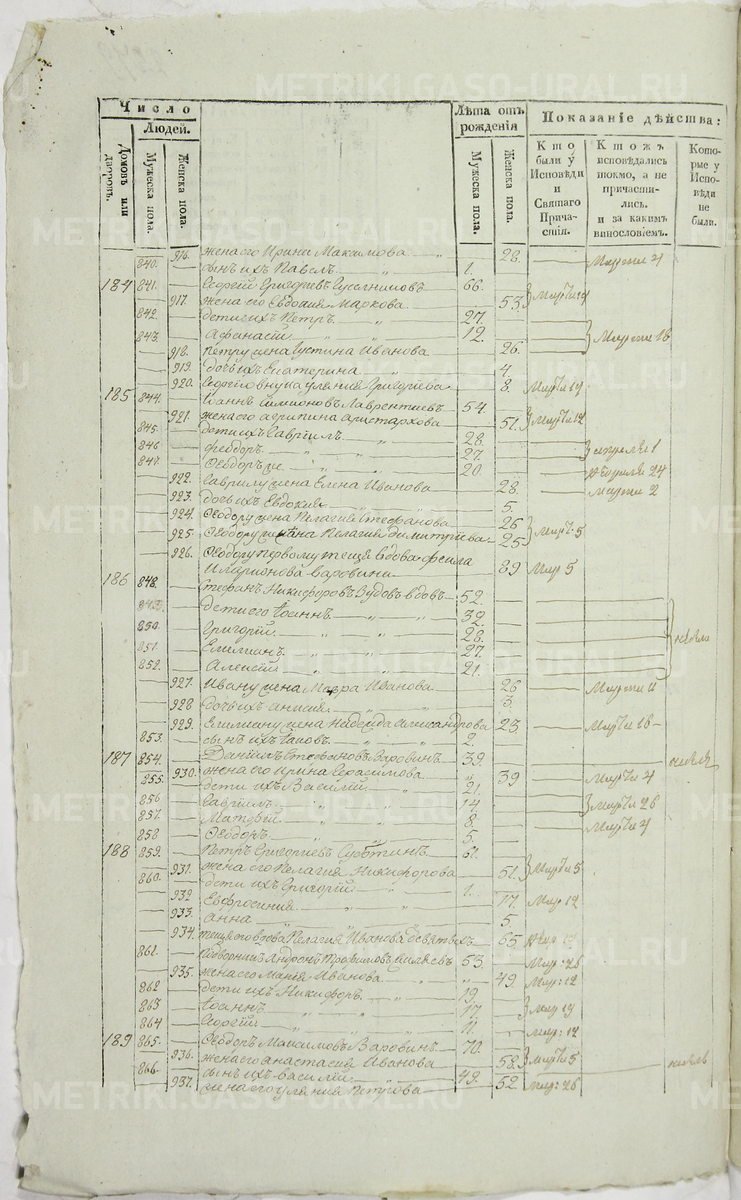 METRIKI.GASO-URAL.RU
Число
Людей.
Лѣта отъ рожденія
Показаніе дѣйства:
Домовъ или дворовъ.
Мужеска пола.
Женска пола.
Мужеска пола.
Женска пола.
Кто были у Исповѣди и Святаго Причастія.
Ктожъ исповѣдались токмо, а не причастились. и за какимъ винословіемъ.
Которые у Исповѣди не были.
916. жена его Ирина Максимова 28. Марта 4
840. сынъ ихъ Павелъ 1.
184 841. Георгій Григорьевъ 66.
917. жена его Евдокия Маркова 53
842. дети ихъ Петръ 27.
843. Афанасій 12. Марта 18
918. Петру жена Иустина Иванова 26.
919. дочь ихъ Екатерина 4.
920. внука Улиания Григорьева 8.
185 844. Іоаннъ Симионовъ Лаврентиевъ 54. Марта 12
921. жена его агрипина аристархова 51.
845. дети ихъ Гавріилъ 28.
846 феодоръ 27. апреля 1
847. Феодоръ же 20. 24
922. Гаврилу жена Елена Иванова 28. Марта 2
923. дочь ихъ Евдокия 5.
924. Феодору жена Пелагия Стефанова 26 Мар: 5
925 Феодору жена Пелагия димитриева 25
926. Феодору первому теща вдова
Иларионова Варовина 89 Мар 5
186 848. Стефанъ Никифоровъ Зудовъ вдовъ 52.
849. дети его Іоаннъ 32.
850. Григорій 28.
851. Емилианъ 27.
852. Алексій 21.
927. Ивану жена Мавра Иванова 26
928 дочь ихъ анисия 3.
929. Емилиану жена Надежда александрова 23 Марта 18
853. сынъ ихъ Іаковъ 2.
187 854. Даніилъ Стефановъ Варовинъ 39.
930. жена его Ирина Герасимова 39 Марта 4
855. дети ихъ Василій 21.
856 Гавріилъ 14 Марта 26
857. Матфій 8. Марта 4
858 Феодоръ 5.
188 859. Петръ Григориевъ Субботинъ 61.
931. жена его Пелагия Никифорова 51. Марта 5
860. дети ихъ Григорій 1.
932 Евфросиния 17. Мар: 12
933. анна 5
934. теща его вдова Пелагия Иванова 65
861. Андронъ Трофимовъ 53. Мар: 26
935. жена его Мария Иванова 49. Мар: 12
862 дети ихъ Никифоръ 19.
863 Іоаннъ 17
864 Георгій 11. мар: 12
189 865. Феодоръ Максимовъ Варовинъ 70.
936. жена его анастасия Иванова 58. Марта 5
866. сынъ ихъ василій 49.
937. жена его улиания Петрова 52 мар: 26